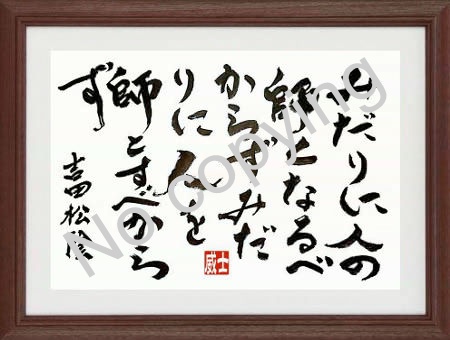 みだりに人の
師となるべ
からずみだ
りに人を
師とすべから
ず
吉田松陰
威士
No copying